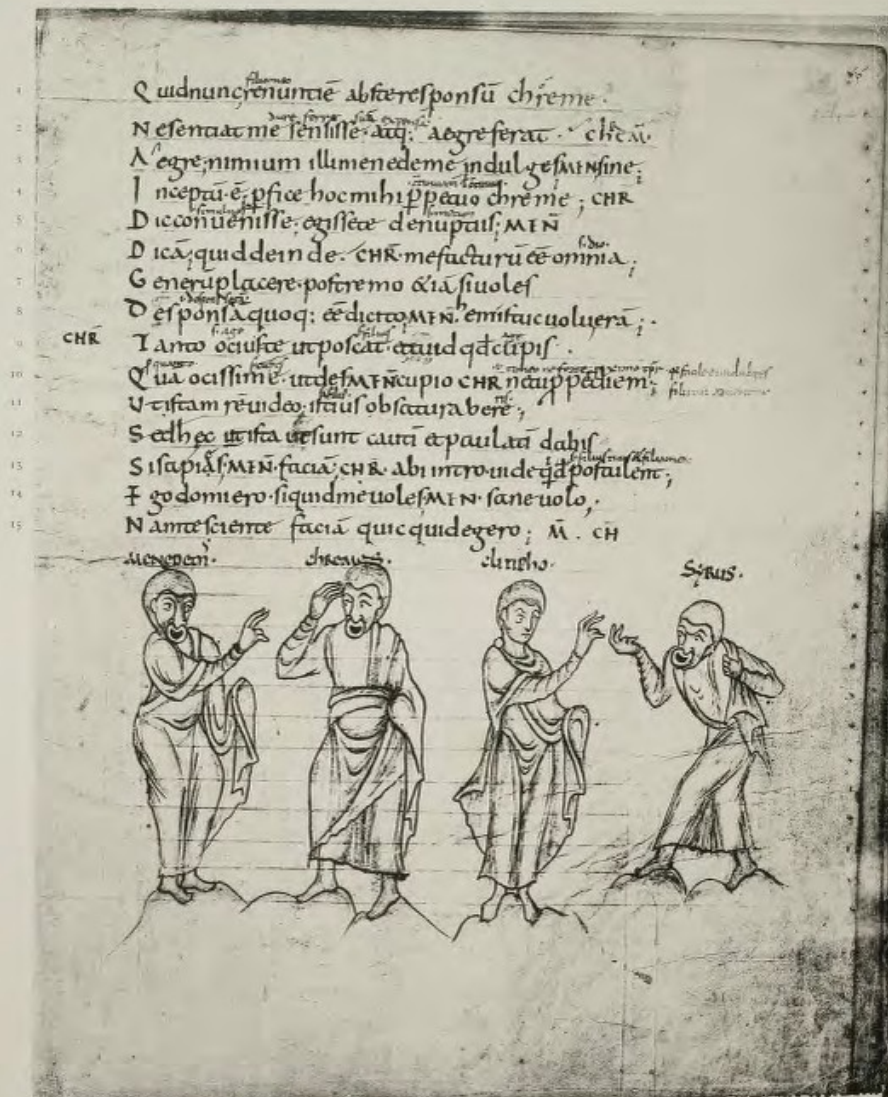 Quidnuncrenuntiē abſteresponsū chreme·
Nesentiatme sensisse· atq; aegreferat · chrem̄·
Aegre; nimium illimenedeme indulges MEN sine;
Inceptū·ē; pfice hocmihi ppetuo chreme; CHR
Dicconvenisse; egissete denuptiis; MEN̄
Dicā; quiddeinde· CHR̄· mefacturū eē omnia;
Generūplacere· postremo &iā sivoles
Desponsāquoq; eē dicito MEN̄· hem istucvoluerā;·
CHR̄ Tanto ociuste utposcat· etuid qd̄cupis·
Quā ocissime· utdes MEN̄ cupio CHR neturppediem;
Utistam rēvideo; istius obsaturabere;
Sedhęc utista utsunt cautī etpaulatī dabis
Sisapias; MEN̄· faciā; CHR̄· abi intro· uide qd̄ postulent;
Egodomiero· siquidmevoles MEN· sanevolo;·
Namtesciente faciā quicquidegero; M̄· CH̄
MENEDEM̄· chremes· clitipho· SYRUS·